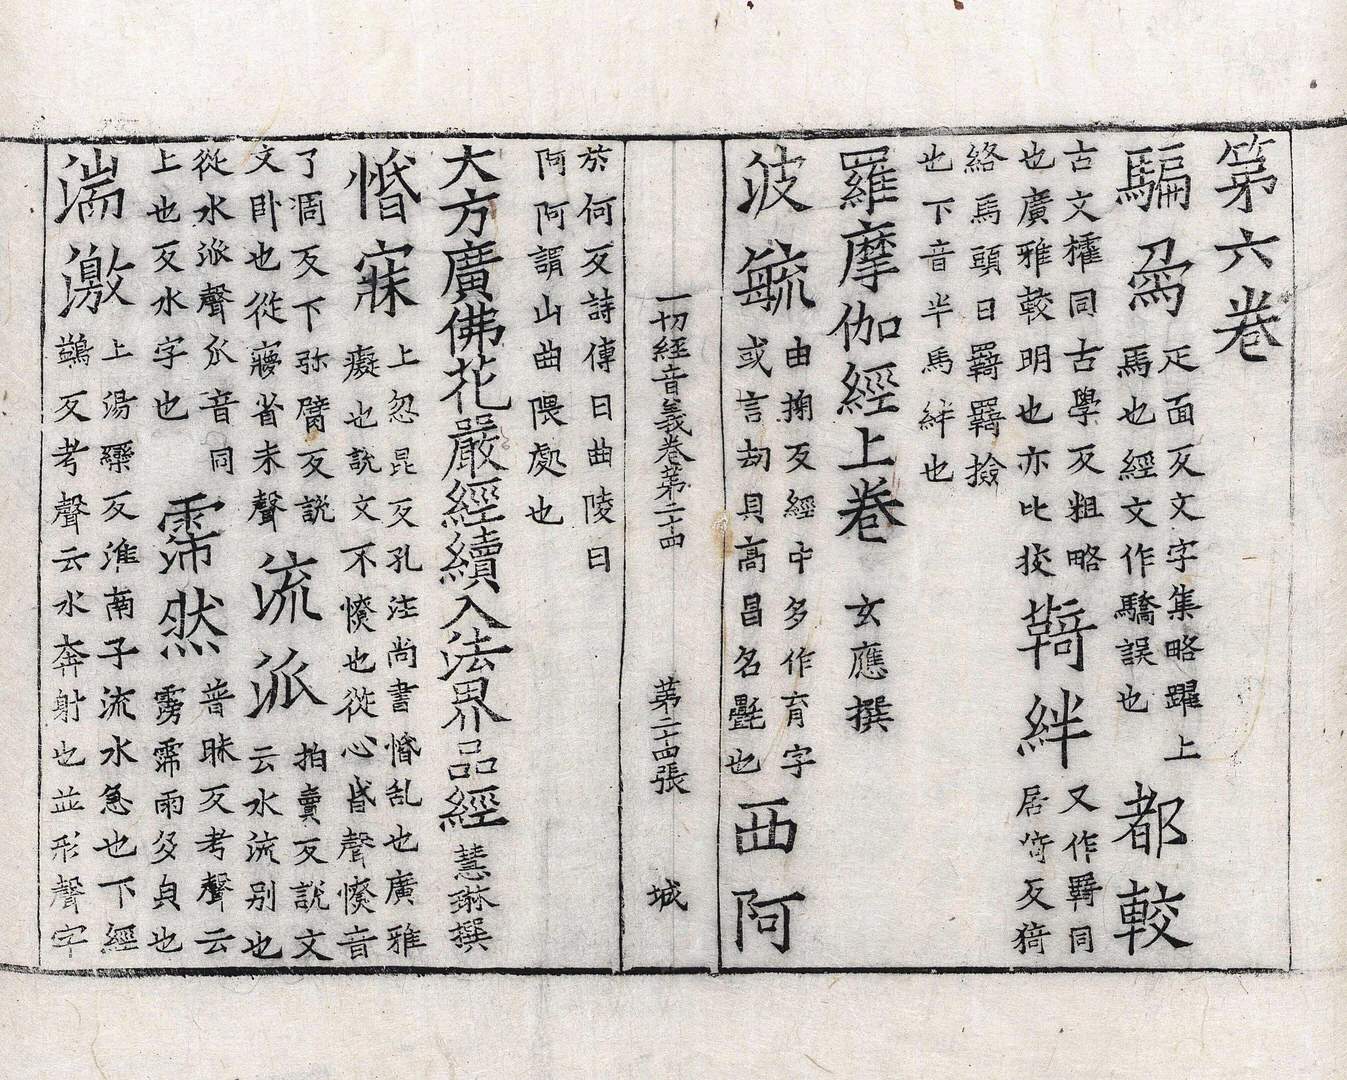 第六卷
騙
疋面反文字集略躍上
馬也經文作驕誤也
都較
古文榷同古學反粗略
也廣雅較明也亦比挍
䩭絆
又作羈同
居笴反猗
絡馬頭曰羇羇撿
也下音半馬絆也
羅摩伽經上卷 玄應撰
波毓
由掬反經中多作育字
或言劫貝高昌名㲲也
西阿
於何反詩傳曰曲陵曰
阿阿謂山曲隈處也
一切經音義卷第二十四 第二十四張 城
大方廣佛花嚴經續入法界品經 慧琳撰
惛寐
上忽昆反孔注尚書惛乱也廣雅
癡也說文不憭也從心昏聲憭音
了凋反下弥臂反說
文卧也從㝱省未聲
流派
拍賣反說文
云水流别也
從水𠂢聲𠂢音同
上也反水字也
霈然
普昧反考聲云
霶霈雨多皃也
湍激
上湯欒反淮南子流水急也下經
鷁反考聲云水奔射也並形聲字